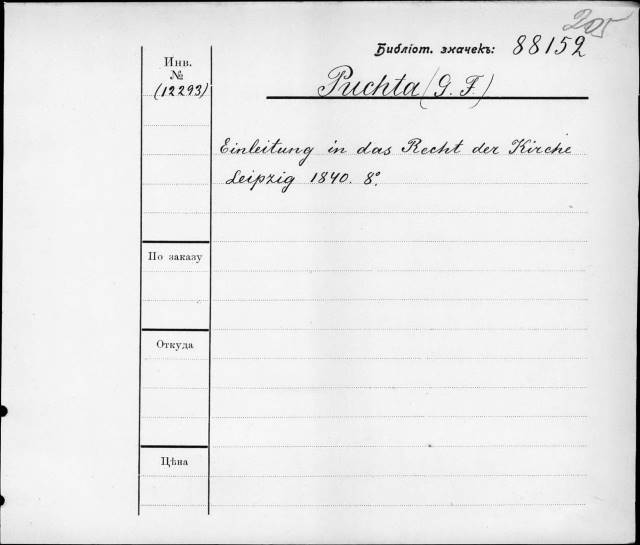 205
Библіот. значекъ: 88152
Инв.
№
(12293)
Puchta (G. F.)
Einleitung in das Recht der Kirche
Leipzig 1840. 8°.
По заказу
Откуда
Цѣна